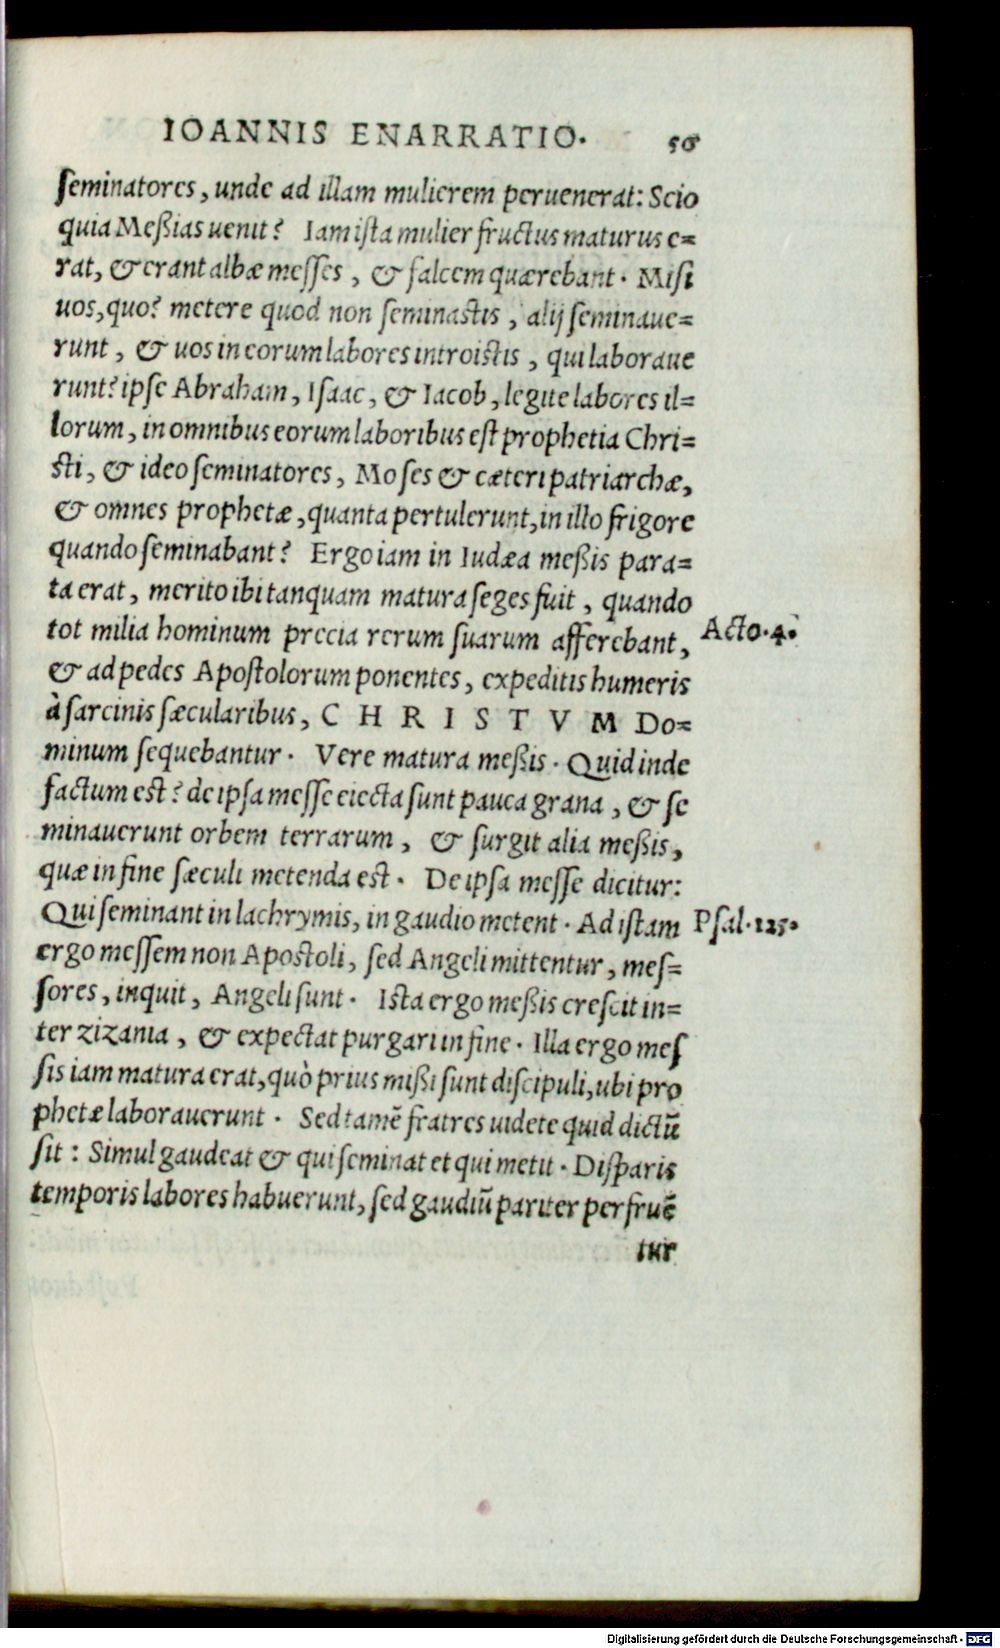 IOANNIS ENARRATIO. 56
seminatores, unde ad illam mulierem peruenerat: Scio
quia Meßias uenit? Iam ista mulier fructus maturus e=
rat, & erant albæ messes, & falcem quærebant. Misi
uos, quo? metere quod non seminastis, alij seminaue=
runt, & uos in eorum labores introistis, qui laboraue
runt? ipse Abraham, Isaac, & Iacob, legite labores il=
lorum, in omnibus eorum laboribus est prophetia Chri=
sti, & ideo seminatores, Moses & cæteri patriarchæ,
& omnes prophetæ, quanta pertulerunt, in illo frigore
quando seminabant? Ergo iam in Iudæa meßis para=
ta erat, merito ibi tanquam matura seges fuit, quando
tot milia hominum precia rerum suarum afferebant, Acto.4.
& ad pedes Apostolorum ponentes, expeditis humeris
à sarcinis sæcularibus, C H R I S T V M Do=
minum sequebantur. Vere matura meßis. Quid inde
factum est? de ipsa messe eiecta sunt pauca grana, & se
minauerunt orbem terrarum, & surgit alia meßis,
quæ in fine sæculi metenda est. De ipsa messe dicitur:
Qui seminant in lachrymis, in gaudio metent. Ad istam Psal.125.
ergo messem non Apostoli, sed Angeli mittentur, mes=
sores, inquit, Angeli sunt. Ista ergo meßis crescit in=
ter zizania, & expectat purgari in fine. Illa ergo mes
sis iam matura erat, quò prius mißi sunt discipuli, ubi pro
phetæ laborauerunt. Sed tamẽ fratres uidete quid dictũ
sit: Simul gaudeat & qui seminat et qui metit. Disparis
temporis labores habuerunt, sed gaudiũ pariter perfruẽ
tur
Digitalisierung gefördert durch die Deutsche Forschungsgemeinschaft - DFG